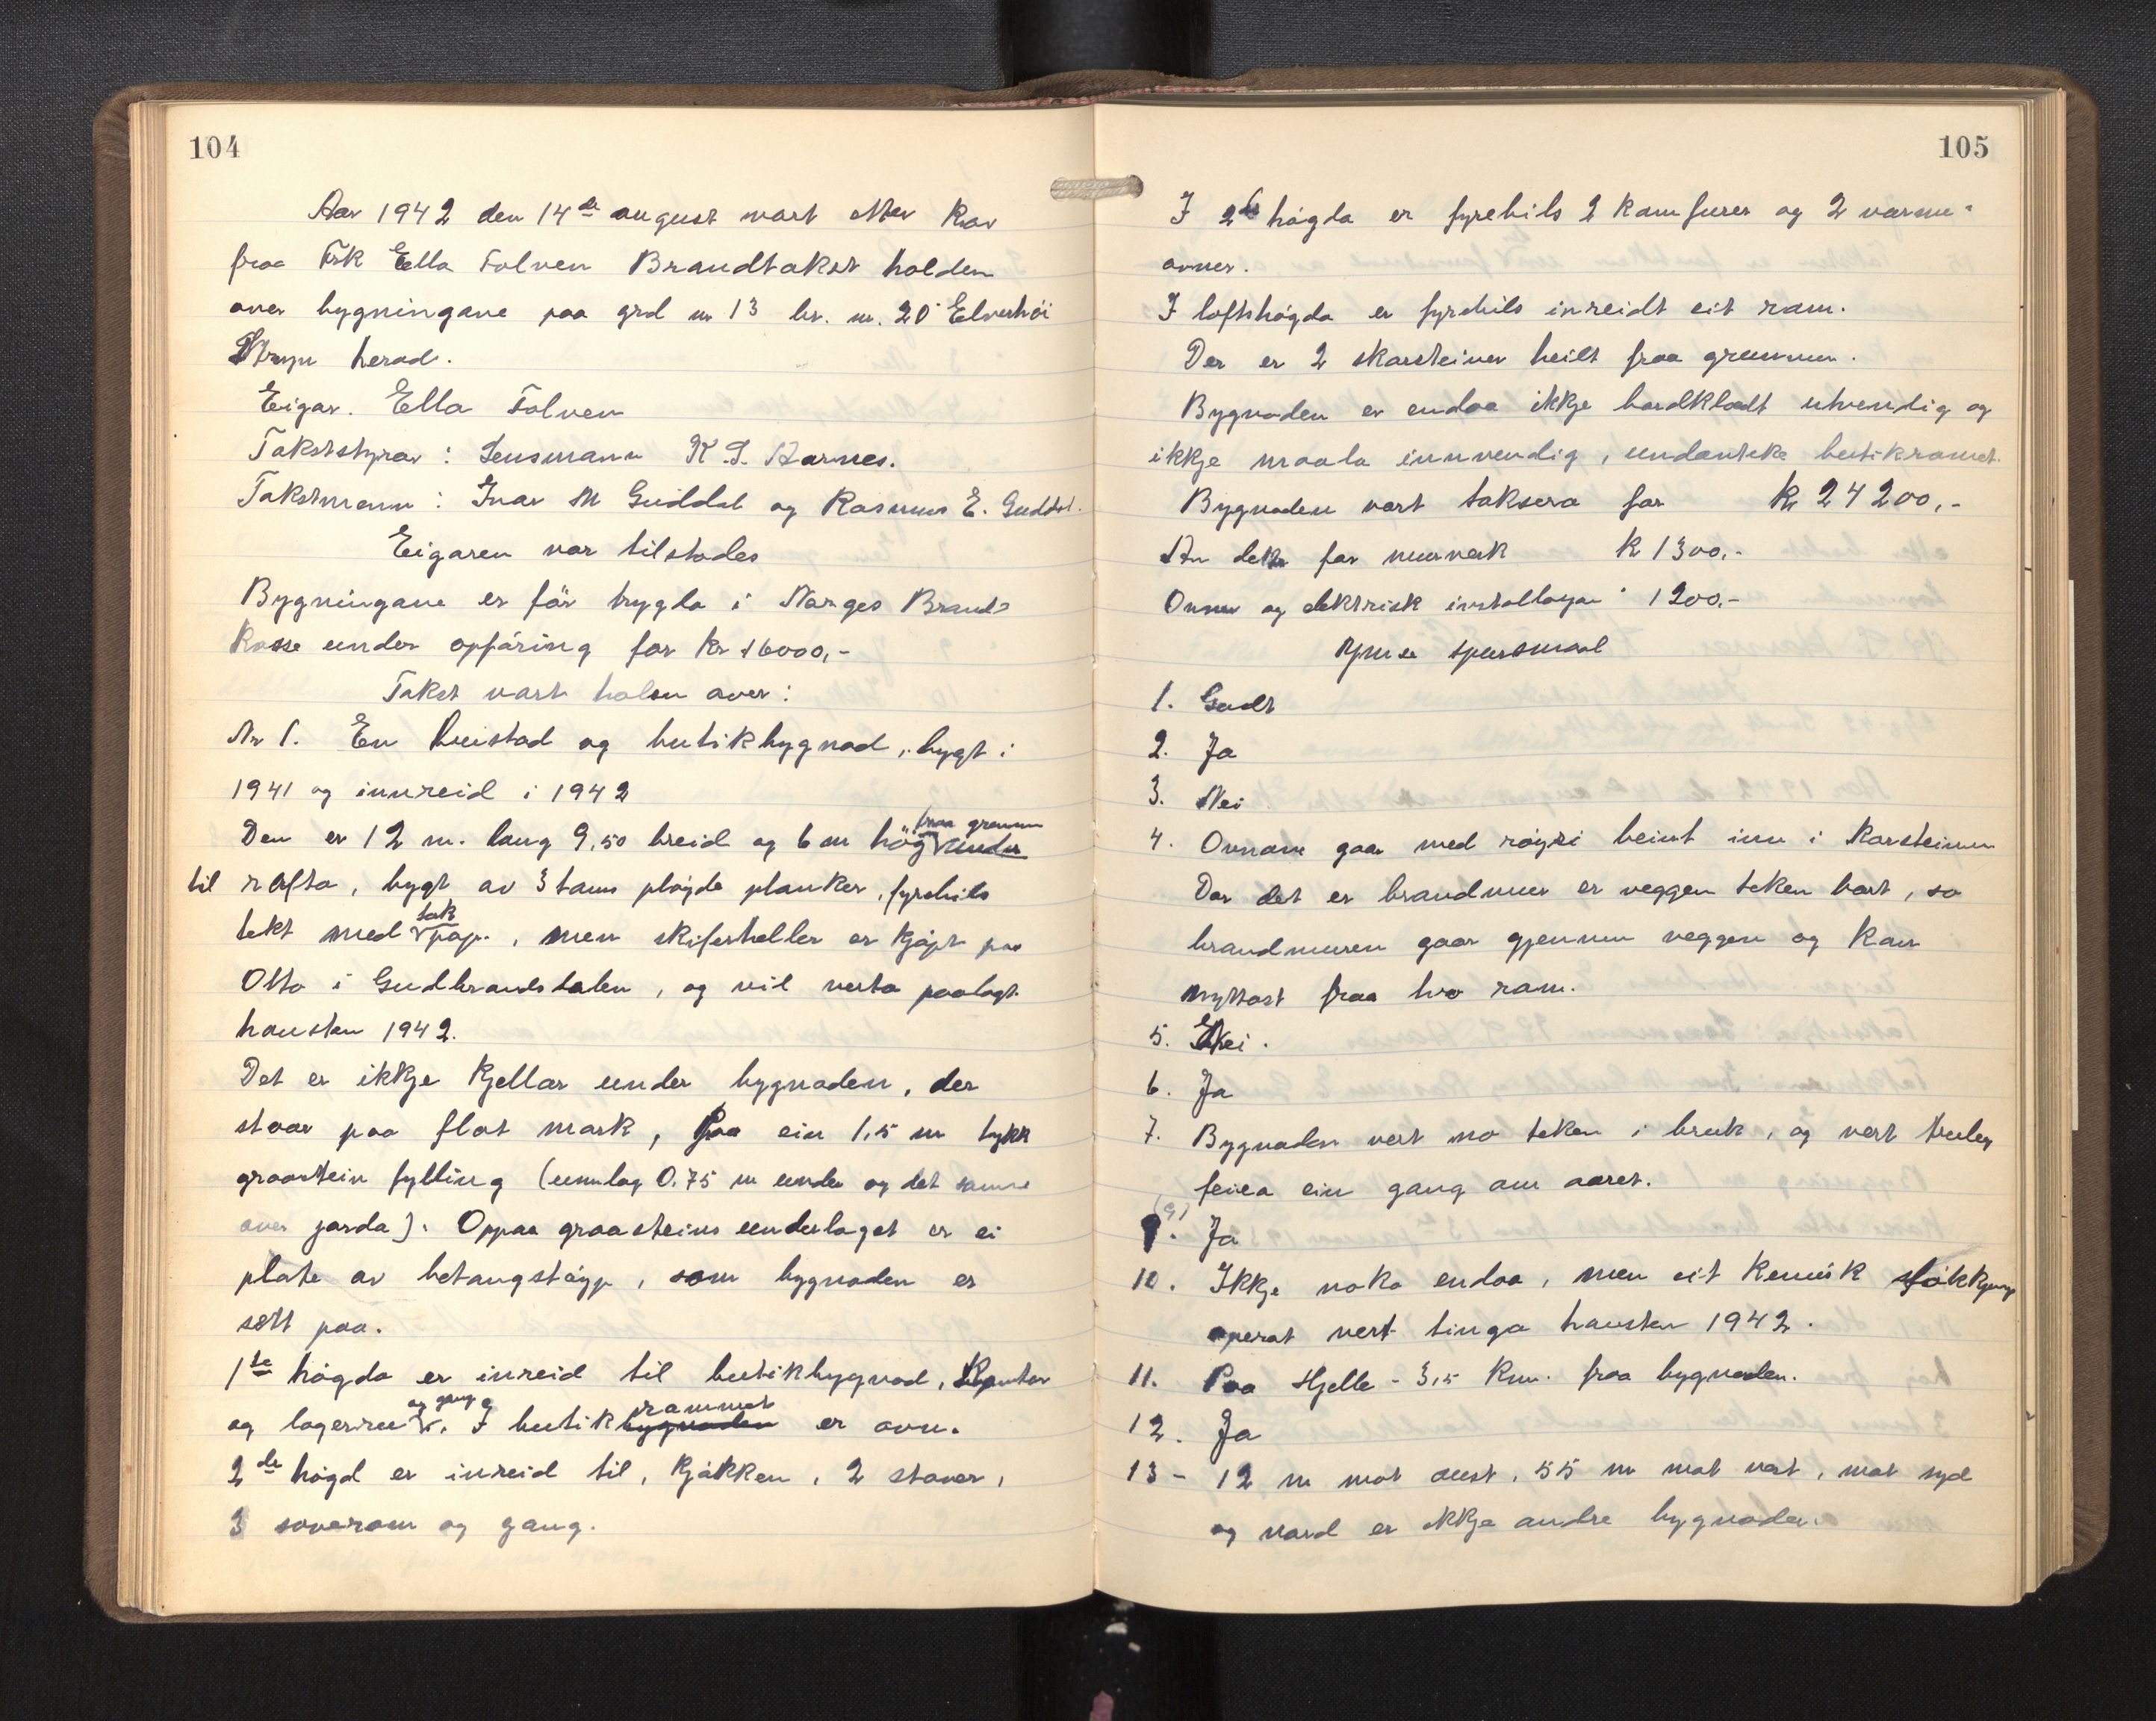 104
Aar 1942 den 14de august vart etter krav
fraa Frk Ella Tolven Brandtakst holden
over bygningane paa grd nr 13 br. nr. 20 Elverhöi
Stryn herad.
Eigar. Ella Tolven
Takststyrar: Lensmann K. S. Aarnes.
Takstmenn: Ivar M Guddal og Rasmus E. Guddal.
Eigaren var tilstades
Bygningane er för trygda i Norges Brand-
kasse under opföring for kr 16000,-
Takst vart holen over:
Nr 1. En beistad og butikbygnad, bygt i
1941 og innreid i 1942
Den er 12 m. lang 9,50 breid og 6 m hög fraa grunnen
til rafta, bygt av 3 toms plöjde planker, fyrebils
tekt med tak pap., men skiferheller er kjöpt paa
Otta i Gudbrandsdalen, og vil verta paalagt
hausten 1942.
Det er ikkje kjellar under bygnaden, der
staar paa flat mark, paa ein 1,5 m tykk
graastein fylling (umlag 0.75 m under og det same
over jorda). Oppaa graasteins underlaget er ei
plate av betongstöyp, som bygnaden er
sett paa.
1ste högda er inreid til butikbygnad, kontor
og lagerrum og gang. I butikrommet er ovn.
2de högd er inreid til, kjökken, 2 stover,
3 soverom og gang.
105
I 2de högda er fyrebils 2 kamfurer og 2 varme-
ovner.
I loftshögda er fyrebils inreidt eit rom.
Der er 2 skorsteiner heilt fraa grunnen.
Bygnaden er endaa ikkje bordklædt utvendig og
ikkje maala innvendig, undanteke butikromet.
Bygnaden vart taksera for kr 24200,-
Av dette for murverk kr 1300,-
Omner og elektrisk installasjon " 1200,-
Ymse spursmaal
1. Godt
2. Ja
3. Nei
4. Ovnane gaar med röyri beint inn i skorsteinen
Der det er brandmur er veggen teken bort, so
brandmuren gaar gjennum veggen og kan
nyttast fraa tvo rom.
5. Nei.
6. Ja
7. Bygnaden vert no teken i bruk, og vert truleg
feiea ein gang om aaret.
9. (9) Ja
10. Ikkje noko endaa, men eit kemisk slökkjings
aperat vert tinga hausten 1942.
11. Paa Hjelle - 3,5 km. fraa bygnaden.
12. Ja
13 - 12 m mot aust, 55 m mot vest, mot syd
og nord er ikkje andre bygnader.